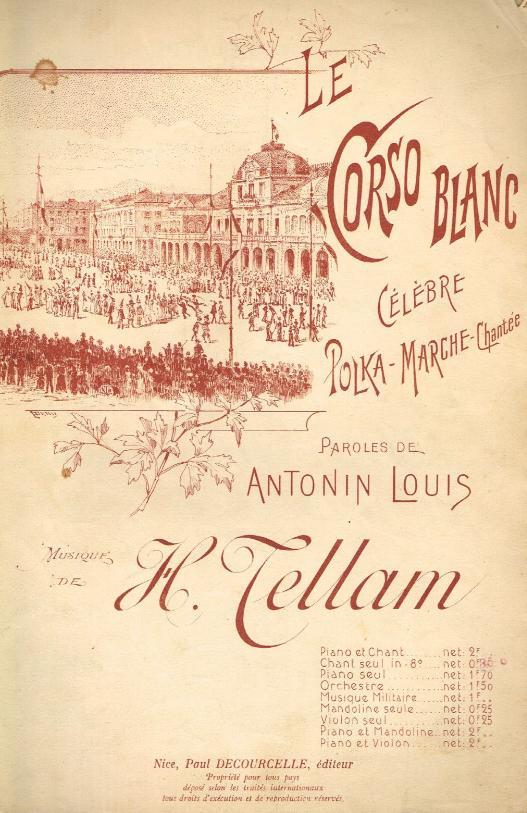 LE
CORSO BLANC
CÉLÈBRE
POLKA-MARCHE-Chantée
PAROLES DE
ANTONIN LOUIS
MUSIQUE
DE
H. Tellam
Piano et Chant........net: 2F..
Chant seul in-8º....net: 0F
Piano seul............net: 1F70
Orchestre............net: 1F50
Musique Militaire....net: 1F..
Mandoline seule.....net: 0F25
Violon seul..........net: 0F25
Piano et Mandoline..net: 2F..
Piano et Violon.....net: 2F..
Nice, Paul DECOURCELLE, éditeur
Propriété pour tous pays
déposé selon les traités internationaux
tous droits d'exécution et de reproduction réservés.